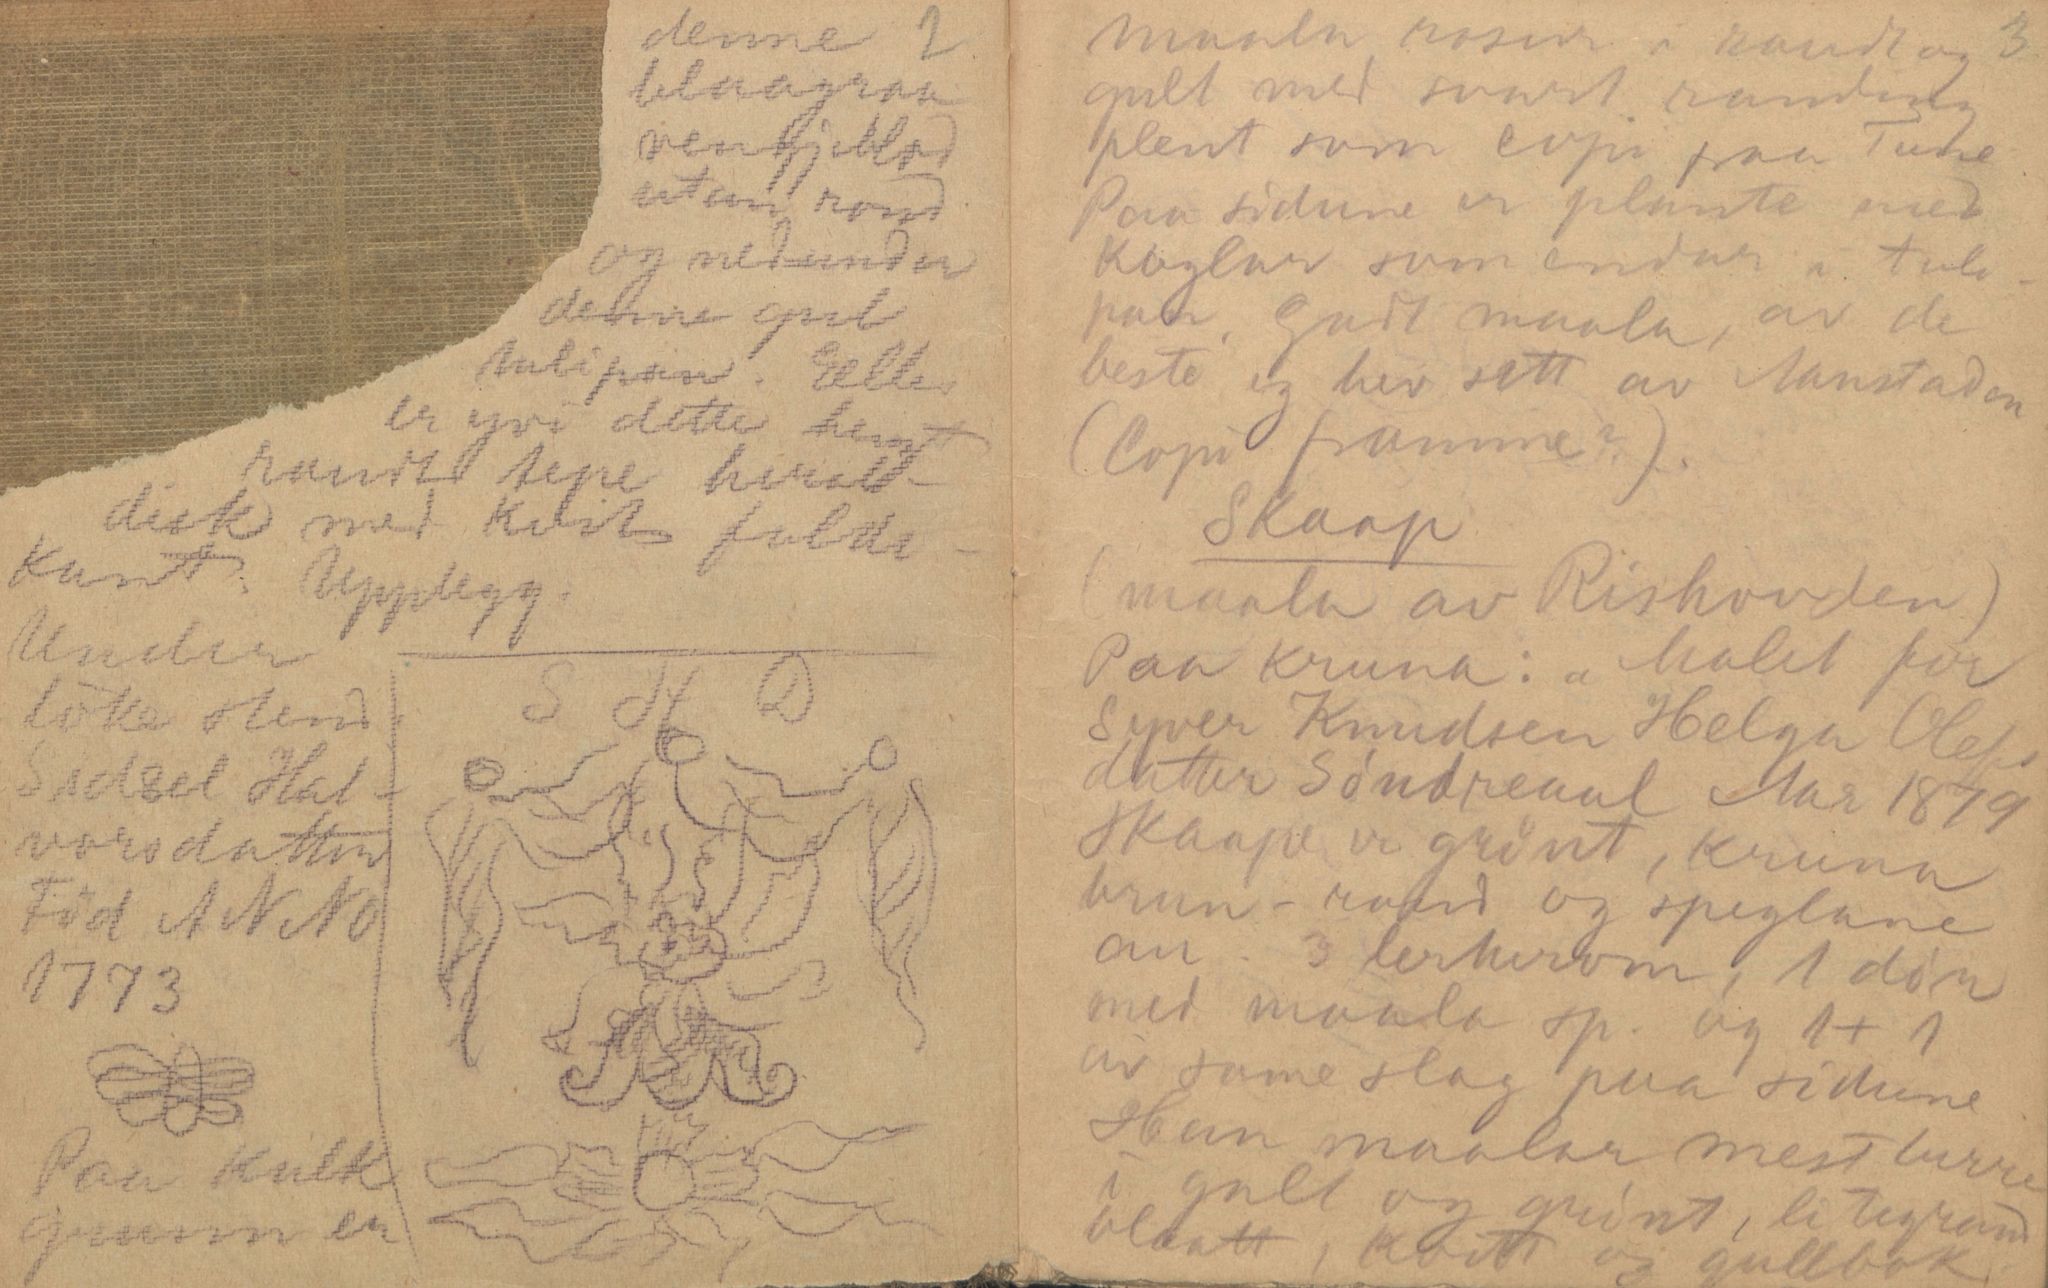 denne 2
blaagraa
vengjeblad
utan raud
og nedunder
denne gul
tulipan. Elles
er yvi dette hengt
raudt tepe herald-
disk med kvit folde-
kant. Upplegg.
Under
loke stend
Sidsel Hal-
vorsdatter
Föd ANNO
1773
Paa kvelk
grunn er
S H D
maala rosur i raudt og 3
gult med svart randing
plent som copi paa Tune
Paa sidune er plante med
Koglar som endar i tuli-
pan. Godt maala, av de
beste eg hev sett av Aanstaden
(Copi framme?).
Skaap
(maala av Rishovden)
Paa kruna: "Malet for
Syver Knudsen Helga Olefs
datter Söndreaal Aar 1879
Skaape er grönt, kruna
brun-raud og speglane
au. 3 lerkerom, 1 dör
med maala sp. og 1+1
av same slag paa sidune
Han maalar mest berre
i gult og grönt, litegrand
blaatt, kvitt og gullbok